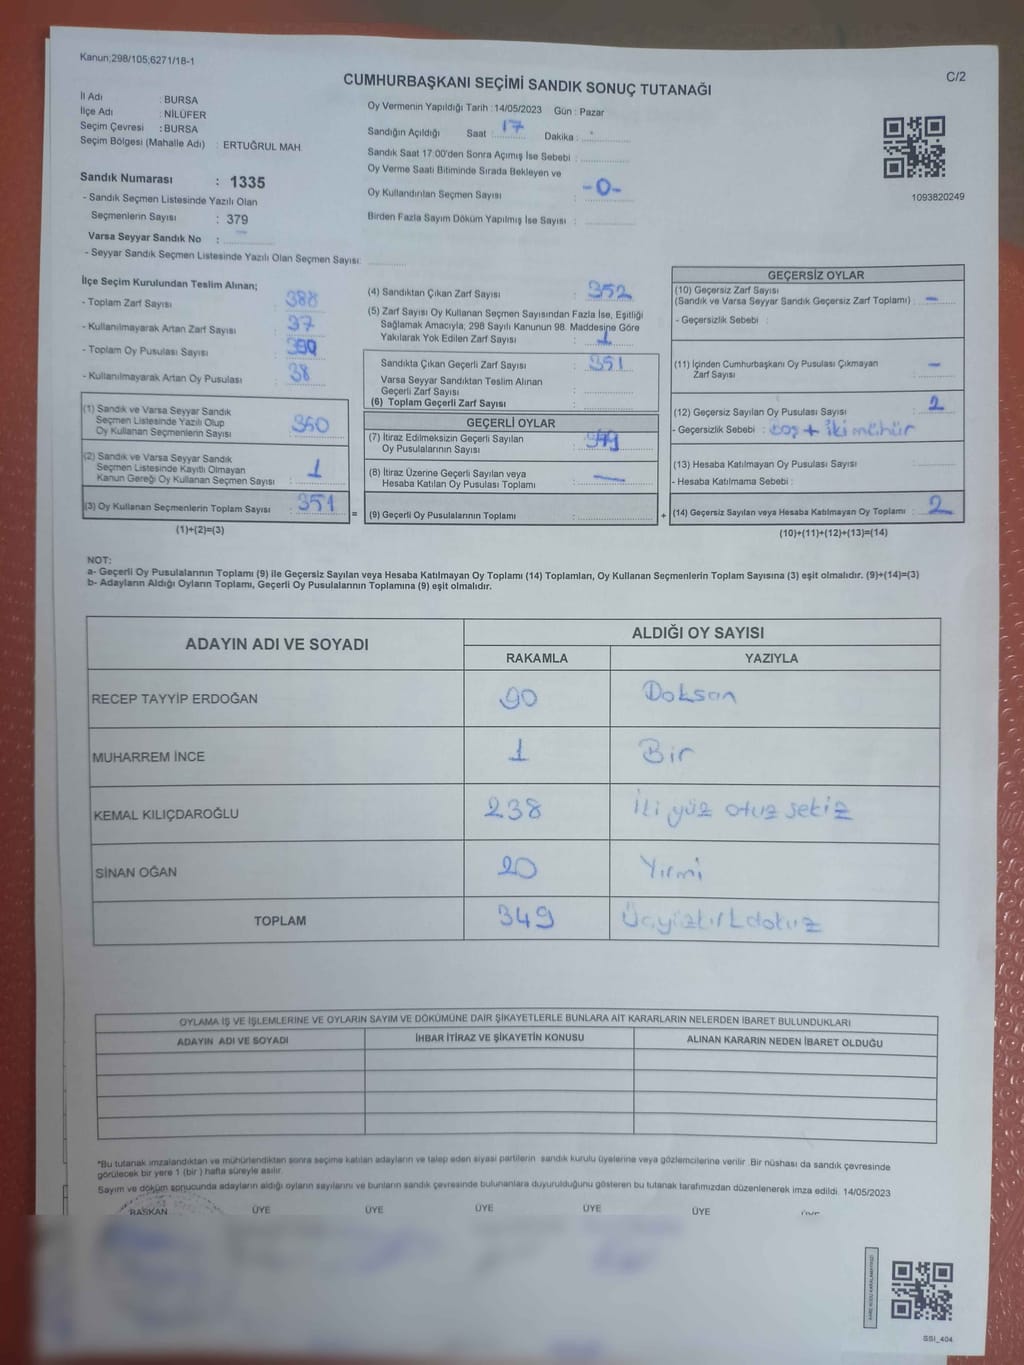 Kanun;298/105;6271/18-1
C/2
CUMHURBAŞKANI SEÇİMİ SANDIK SONUÇ TUTANAĞI
İl Adı : BURSA
İlçe Adı : NİLÜFER
Seçim Çevresi : BURSA
Seçim Bölgesi (Mahalle Adı) : ERTUĞRUL MAH.
Sandık Numarası : 1335
- Sandık Seçmen Listesinde Yazılı Olan
Seçmenlerin Sayısı : 379
Varsa Seyyar Sandık No : -
- Seyyar Sandık Seçmen Listesinde Yazılı Olan Seçmen Sayısı:
Oy Vermenin Yapıldığı Tarih : 14/05/2023 Gün : Pazar
Sandığın Açıldığı Saat : 17 Dakika :
Sandık Saat 17:00'den Sonra Açımış İse Sebebi :
Oy Verme Saati Bitiminde Sırada Bekleyen ve
Oy Kullandırılan Seçmen Sayısı : -0-
Birden Fazla Sayım Döküm Yapılmış İse Sayısı :
1093820249
İlçe Seçim Kurulundan Teslim Alınan;
- Toplam Zarf Sayısı : 388
- Kullanılmayarak Artan Zarf Sayısı : 37
- Toplam Oy Pusulası Sayısı :
- Kullanılmayarak Artan Oy Pusulası : 38
(1) Sandık ve Varsa Seyyar Sandık
Seçmen Listesinde Yazılı Olup
Oy Kullanan Seçmenlerin Sayısı : 350
(2) Sandık ve Varsa Seyyar Sandık
Seçmen Listesinde Kayıtlı Olmayan
Kanun Gereği Oy Kullanan Seçmen Sayısı : 1
(3) Oy Kullanan Seçmenlerin Toplam Sayısı : 351 =
(1)+(2)=(3)
(4) Sandıktan Çıkan Zarf Sayısı : 352
(5) Zarf Sayısı Oy Kullanan Seçmen Sayısından Fazla İse, Eşitliği
Sağlamak Amacıyla; 298 Sayılı Kanunun 98. Maddesine Göre
Yakılarak Yok Edilen Zarf Sayısı : 1
Sandıkta Çıkan Geçerli Zarf Sayısı : 351
Varsa Seyyar Sandıktan Teslim Alınan
Geçerli Zarf Sayısı :
(6) Toplam Geçerli Zarf Sayısı :
GEÇERLİ OYLAR
(7) İtiraz Edilmeksizin Geçerli Sayılan
Oy Pusulalarının Sayısı : 349
(8) İtiraz Üzerine Geçerli Sayılan veya
Hesaba Katılan Oy Pusulası Toplamı : —
(9) Geçerli Oy Pusulalarının Toplamı : +
GEÇERSİZ OYLAR
(10) Geçersiz Zarf Sayısı
(Sandık ve Varsa Seyyar Sandık Geçersiz Zarf Toplamı) : -
- Geçersizlik Sebebi :
(11) İçinden Cumhurbaşkanı Oy Pusulası Çıkmayan
Zarf Sayısı : -
(12) Geçersiz Sayılan Oy Pusulası Sayısı : 2
- Geçersizlik Sebebi : boş + iki mühür
(13) Hesaba Katılmayan Oy Pusulası Sayısı :
- Hesaba Katılmama Sebebi :
(14) Geçersiz Sayılan veya Hesaba Katılmayan Oy Toplamı : 2
(10)+(11)+(12)+(13)=(14)
NOT:
a- Geçerli Oy Pusulalarının Toplamı (9) ile Geçersiz Sayılan veya Hesaba Katılmayan Oy Toplamı (14) Toplamları, Oy Kullanan Seçmenlerin Toplam Sayısına (3) eşit olmalıdır. (9)+(14)=(3)
b- Adayların Aldığı Oyların Toplamı, Geçerli Oy Pusulalarının Toplamına (9) eşit olmalıdır.
ADAYIN ADI VE SOYADI ALDIĞI OY SAYISI
RAKAMLA YAZIYLA
RECEP TAYYİP ERDOĞAN 90 Doksan
MUHARREM İNCE 1 Bir
KEMAL KILIÇDAROĞLU 238 İki yüz otuz sekiz
SİNAN OĞAN 20 Yirmi
TOPLAM 349
OYLAMA İŞ VE İŞLEMLERİNE VE OYLARIN SAYIM VE DÖKÜMÜNE DAİR ŞİKAYETLERLE BUNLARA AİT KARARLARIN NELERDEN İBARET BULUNDUKLARI
ADAYIN ADI VE SOYADI İHBAR İTİRAZ VE ŞİKAYETİN KONUSU ALINAN KARARIN NEDEN İBARET OLDUĞU
*Bu tutanak imzalandıktan ve mühürlendikten sonra seçime katılan adayların ve talep eden siyasi partilerin sandık kurulu üyelerine veya gözlemcilerine verilir. Bir nüshası da sandık çevresinde
görülecek bir yere 1 (bir ) hafta süreyle asılır.
Sayım ve döküm sonucunda adayların aldığı oyların sayılarını ve bunların sandık çevresinde bulunanlara duyurulduğunu gösteren bu tutanak tarafımızdan düzenlenerek imza edildi. 14/05/2023
BAŞKAN ÜYE ÜYE ÜYE ÜYE ÜYE ÜYE
SSI_404